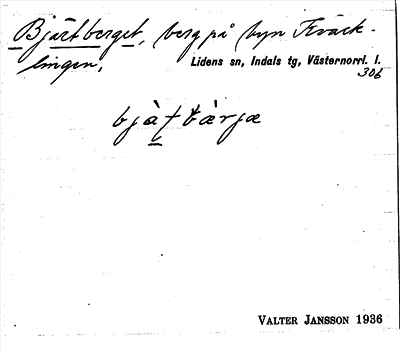 Bjärtberget, berg på byn Kväck-
lingen.
Lidens sn, Indals tg, Västernorrl. l.
306
VALTER JANSSON 1936